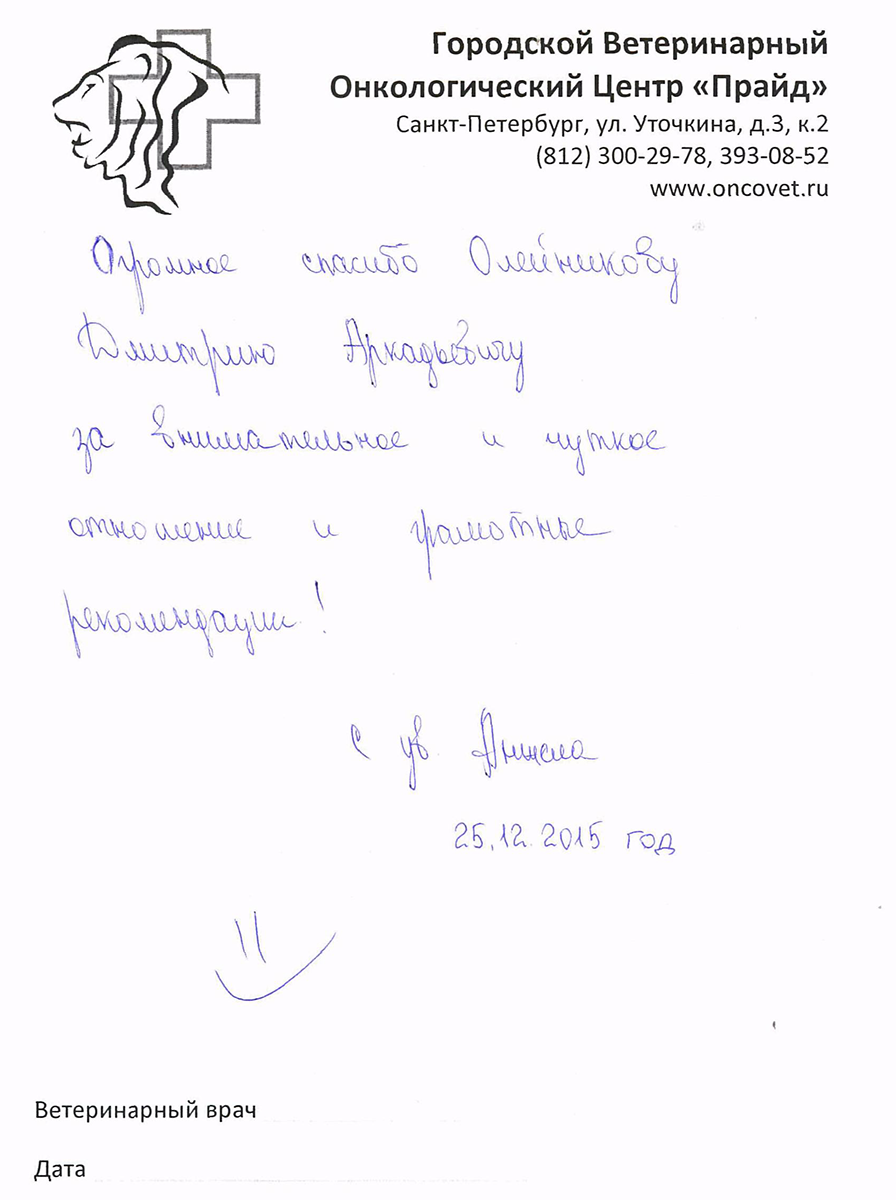 Городской Ветеринарный
Онкологический Центр «Прайд»
Санкт-Петербург, ул. Уточкина, д.3, к.2
(812) 300-29-78, 393-08-52
www.oncovet.ru
Огромное спасибо Олейникову
Дмитрию Аркадьевичу
за внимательное и чуткое
отношение и грамотные
рекомендации!
С ув Анжела
25.12.2015 год
Ветеринарный врач
Дата